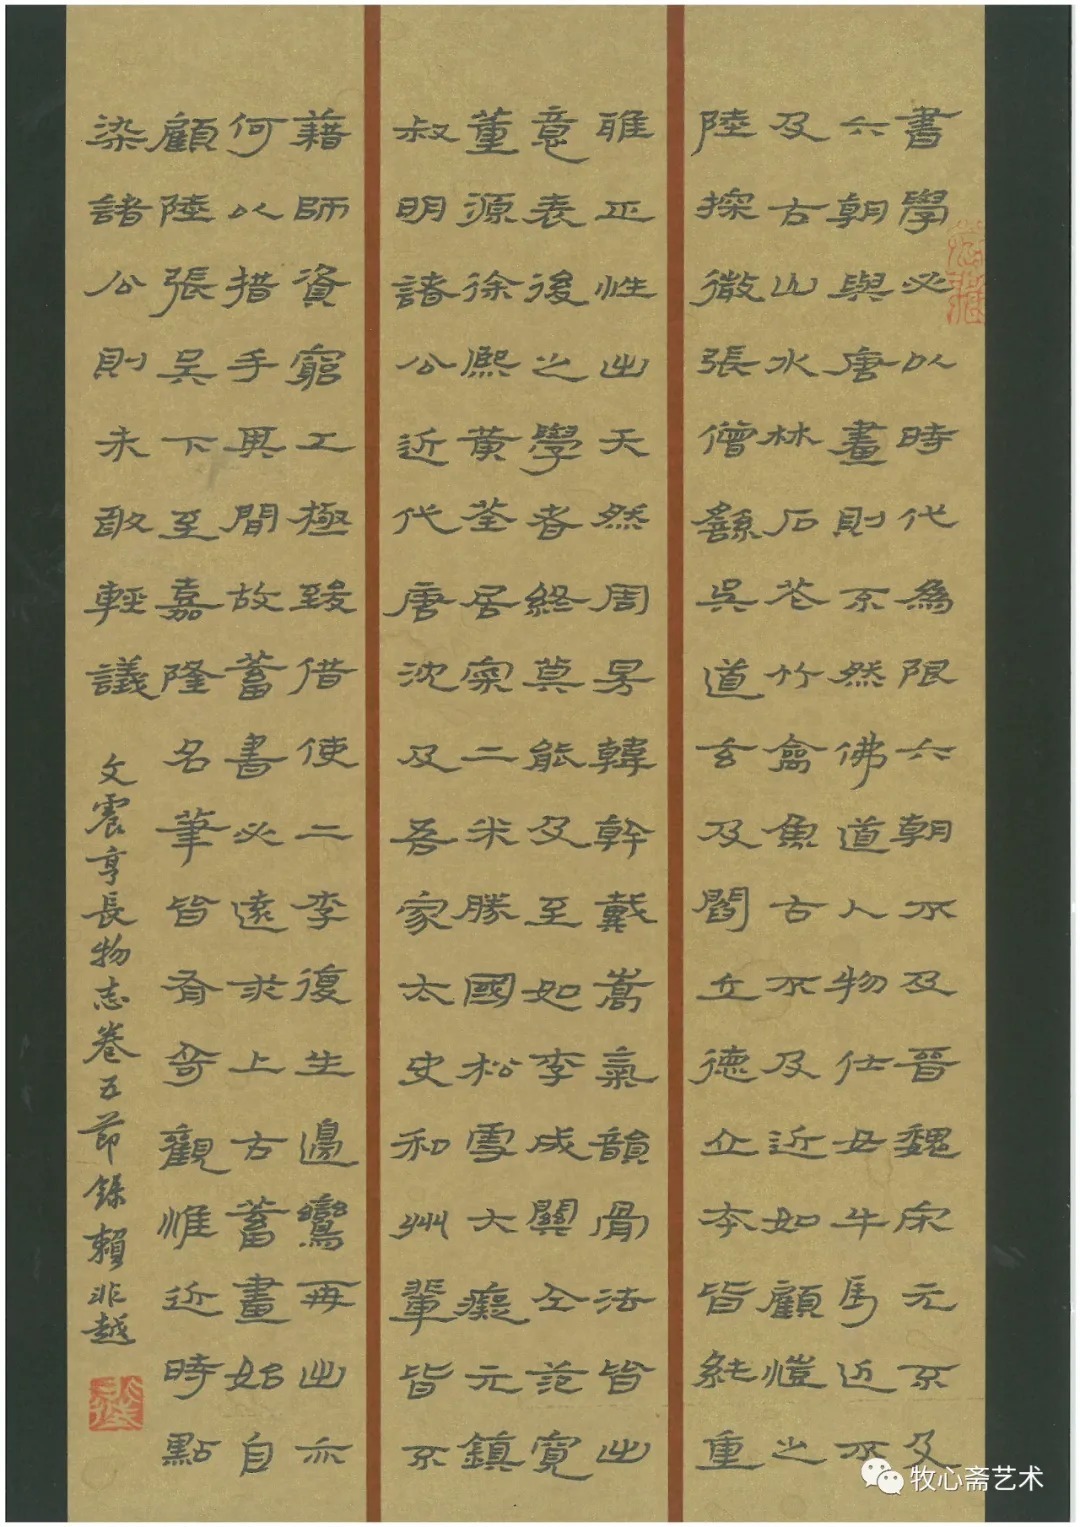 書學必以時代為限六朝不及晉魏宋元不及
六朝與唐畫則不然佛道人物仕女牛馬近不
及古山水林石花竹禽魚古不及近如顧愷之
陸探微張僧繇吳道玄及閻立德立本皆純重
雅正性出天然周昉韓幹戴嵩氣韻骨法皆出
意表後之學者終莫能及至如李成關仝范寬
董源徐熙黃荃居寀二米勝國松雪大癡元鎮
叔明諸公近代唐沈及吾家太史和州輩皆不
藉師資窮工極致借使二李復生邊鸞再出亦
何以措手其間故蓄書必遠求上古蓄畫始自
顧陸張吳下至嘉隆名筆皆有奇觀惟近時點
染諸公則未敢輕議
文震亨長物志卷五節錄賴非越
牧心斋艺术